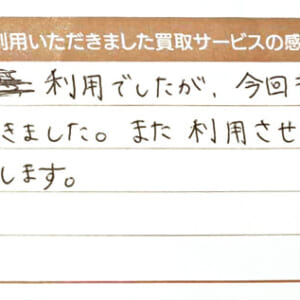 利用いただきました買取サービスの感
利用でしたが、今回
きました。また利用させ
します。